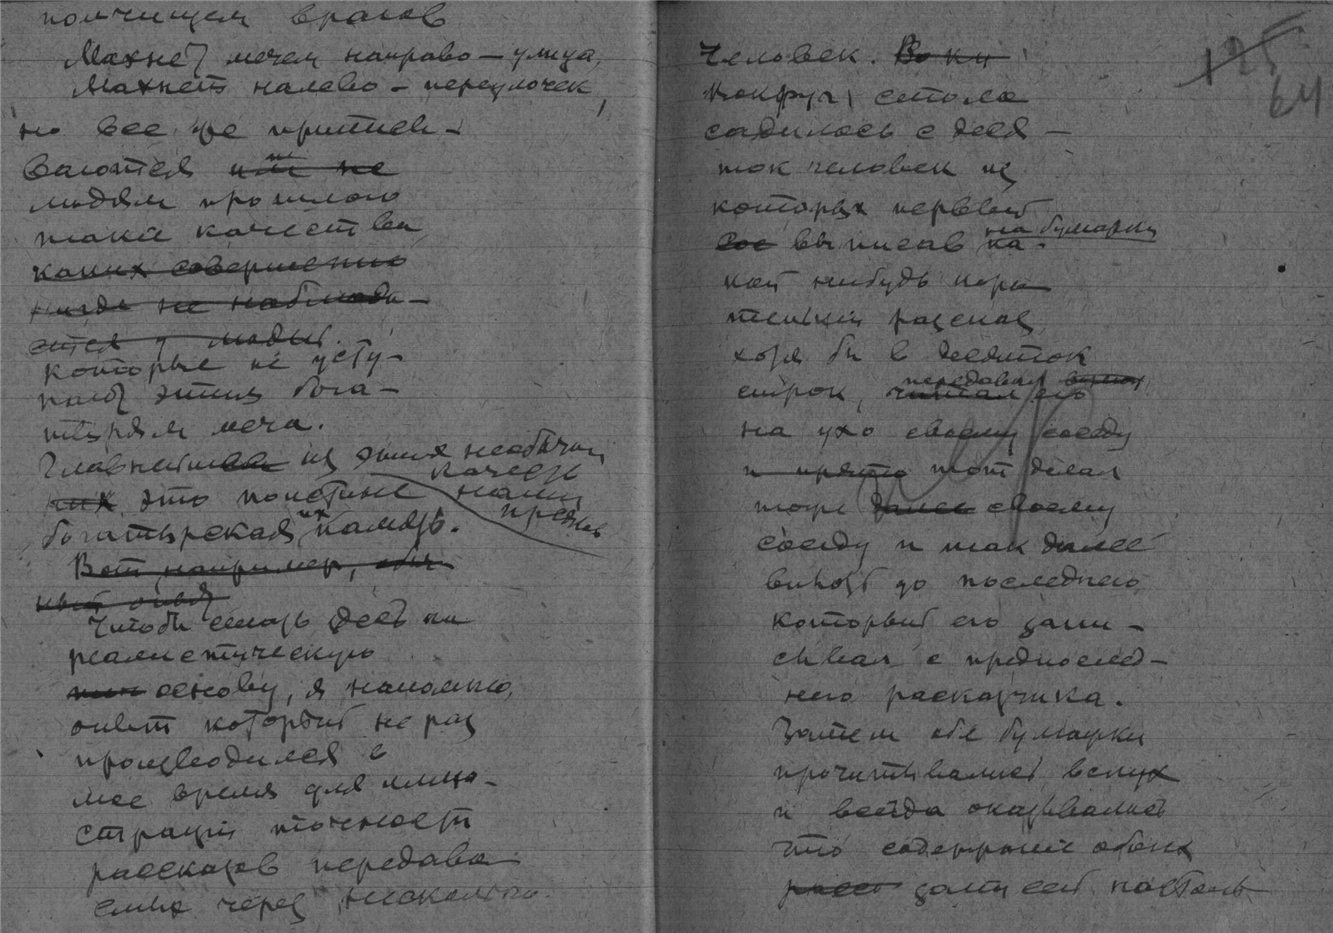 полчищем врагов
Махнет мечем направо — улица,
Махнет налево — переулочек,
но все же приписы-
ваются им не
людям прошлого
такие качества
каких совершенно
нигде не наблюда-
ется у людей.
которые не усту-
пают этим бога-
тырям меча.
Главнейшее из этих необычай
ных качеств наших предков
это поистине
богатырская их память.
Вот, например,
ный опыт
Чтобы стать здесь на
реалистическую
основу, я напомню,
опыт который не раз
производился в
мое время для иллю-
страции точности
рассказов передава
емых через несколько
125
64
человек. Во кн
Вокруг стола
садилось с деся-
ток человек из
которых первый
сое выписав на бумажку ка-
кой нибудь коро
тенький рассказ
хотя бы в десяток
строк, читал передавал его
на ухо своему соседу
и просто тот делал
тоже далее своему
соседу и так далее
вплоть до последнего
который его запи-
сывал с предпослед-
него рассказчика.
Затем обе бумажки
прочитывались вслух
и всегда оказывалось
что содержание обоих
расс записей настоль